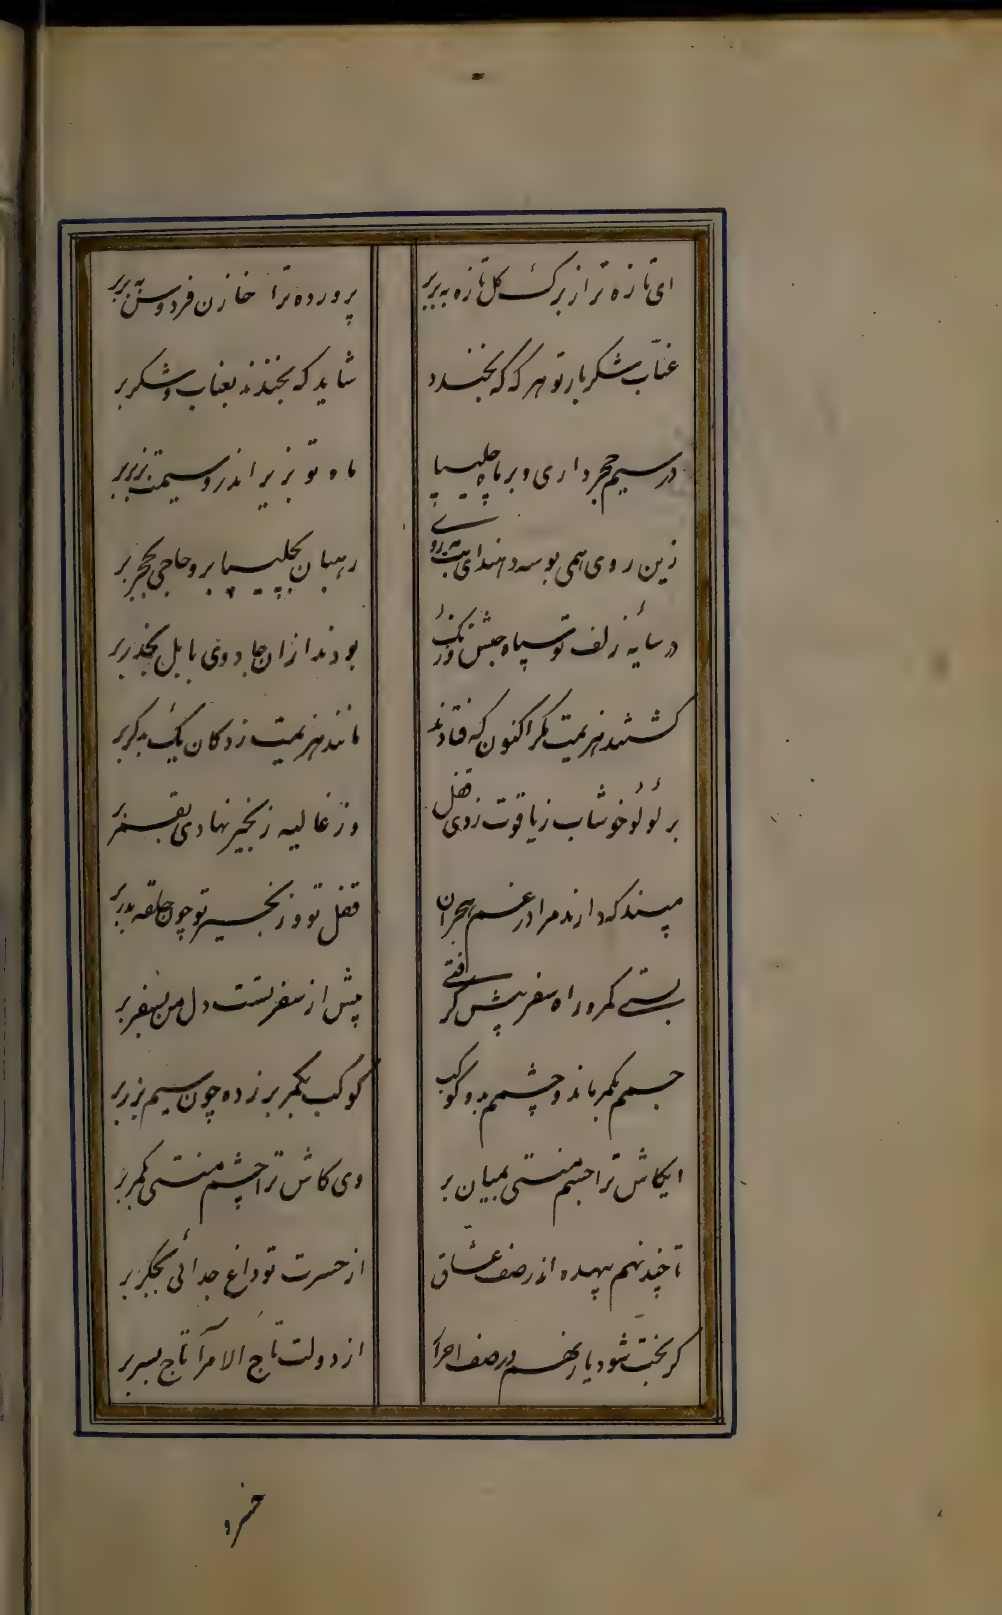 ای تازه تر از برک کل تازه به بر بر
پرورده ترا خازن فردوس به بر بر
عناب شکر بار تو هر که که بخندد
شاید که بخندند بعناب و شکر بر
در سیم حجر داری و بر ماه چلیپا
ماه تو بزیر اندر و سیمت بزبر بر
زین روی همی بوسه دهند ای بت
رهبان بچلیپا بر و حاجی بحجر بر
در سایهٔ زلف تو سپاه حبش و زنک
بودند ازان جادوی بابل بحذر بر
کشتند هزیمت مکر اکنون که فتادند
مانند هزیمت زدکان یک بدکر بر
بر لؤلؤ خوشاب ز یاقوت زدی قفل
وز غالیه زنجیر نهادی بقمر بر
مپسند که دارند مرا در غم هجران
قفل تو و زنجیر تو چون حلقه بدر بر
بستی کمر و راه سفر پیش کرفتی
پیش از سفرتست دل من بسفر بر
جسمم بکمر ماند و چشمم بدو کوکب
کوکب بکمر بر زده چون سیم بزر بر
ایکاش ترا جسم منستی بمیان بر
وی کاش ترا چشم منستی بکمر بر
تا چند نهم بیهده اندر صف عشاق
از حسرت تو داغ جدائی بجکر بر
کر بخت شود یار نهم در صف احرار
از دولت تاج الامرا تاج بسر بر
خسرو